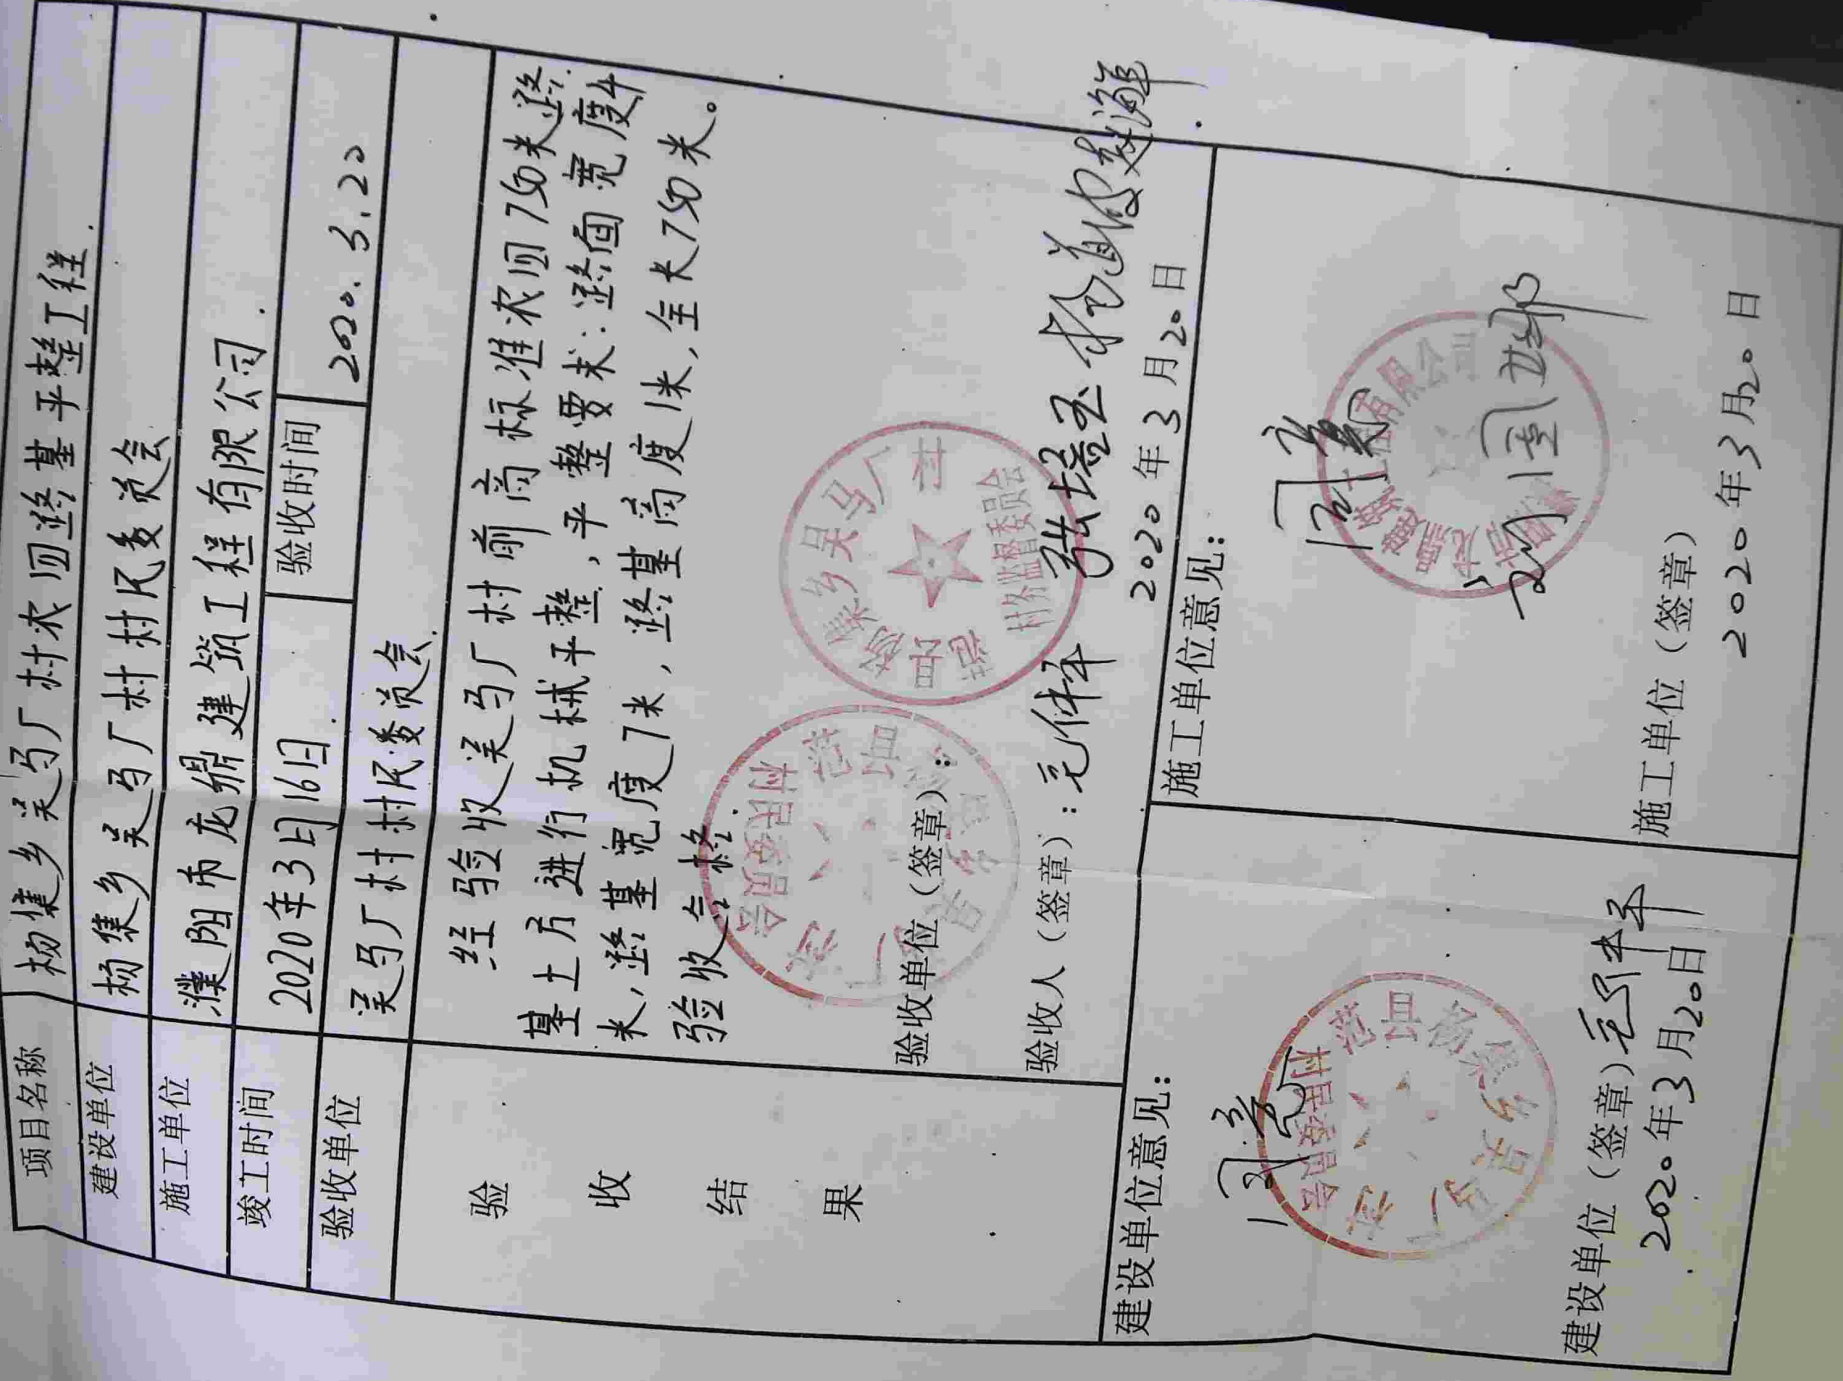 项目名称 杨集乡吴马厂村农田路基平整工程.
建设单位 杨集乡吴马厂村村民委员会
施工单位 濮阳市龙鼎建筑工程有限公司.
竣工时间 2020年3月16日. 验收时间 2020.3.20
验收单位 吴马厂村村民委员会.
验收结果
经验收吴马厂村前高标准农田750米路
基土方进行机械平整,平整要求:路面宽度4
米,路基宽度7米,路基高度1米,全长750米。
验收合格.
村民委员会
杨集乡吴马厂村
村务监督委员会
验收单位(签章):
验收人(签章):
2020年3月20日
建设单位意见:
同意
范县杨集乡吴马厂村
村民委员会
建设单位(签章)
2020年3月20日
施工单位意见:
同意
工程有限公司
施工单位(签章)
2020年3月20日